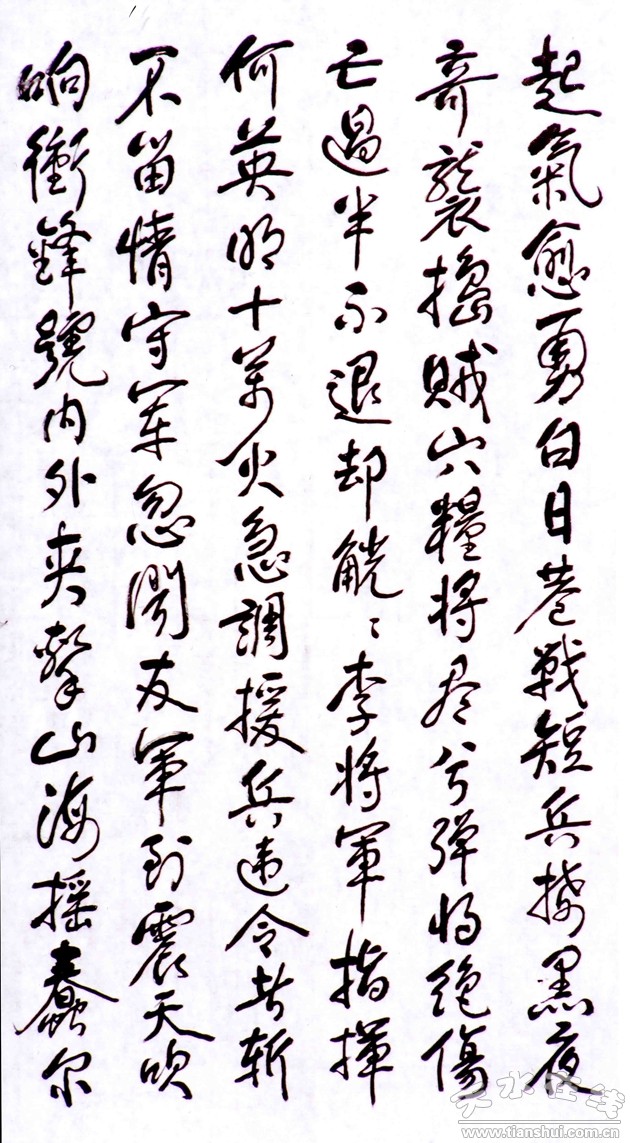 起氣愈勇白日巷戰短兵接黑夜
奇襲搗賊穴糧將尽兮彈將絕傷
亡過半不退却觥〻李將軍指揮
何英明十萬火急調援兵违令者斩
不留情守軍忽聞友軍到震天吹
响衝鋒號内外夹擊山海摇蠢尔
天水在线
www.tianshui.com.cn